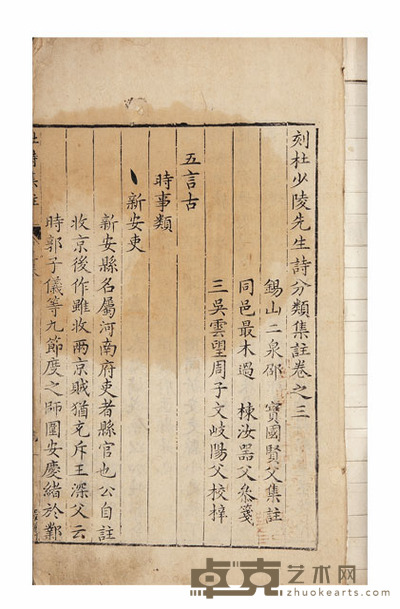 刻杜少陵先生詩分類集註卷之三
錫山二泉邵 寳國賢父集註
同邑最木過 棟汝器父叅箋
三吳雲望周子文岐陽父校梓
五言古
時事類
新安吏
新安縣名屬河南府吏者縣官也公自註
收京後作雖收兩京賊猶充斥王深父云
時郭子儀等九節度之師圍安慶緒於鄴
杜詩集註
卓克艺术网
www.zhuokearts.com